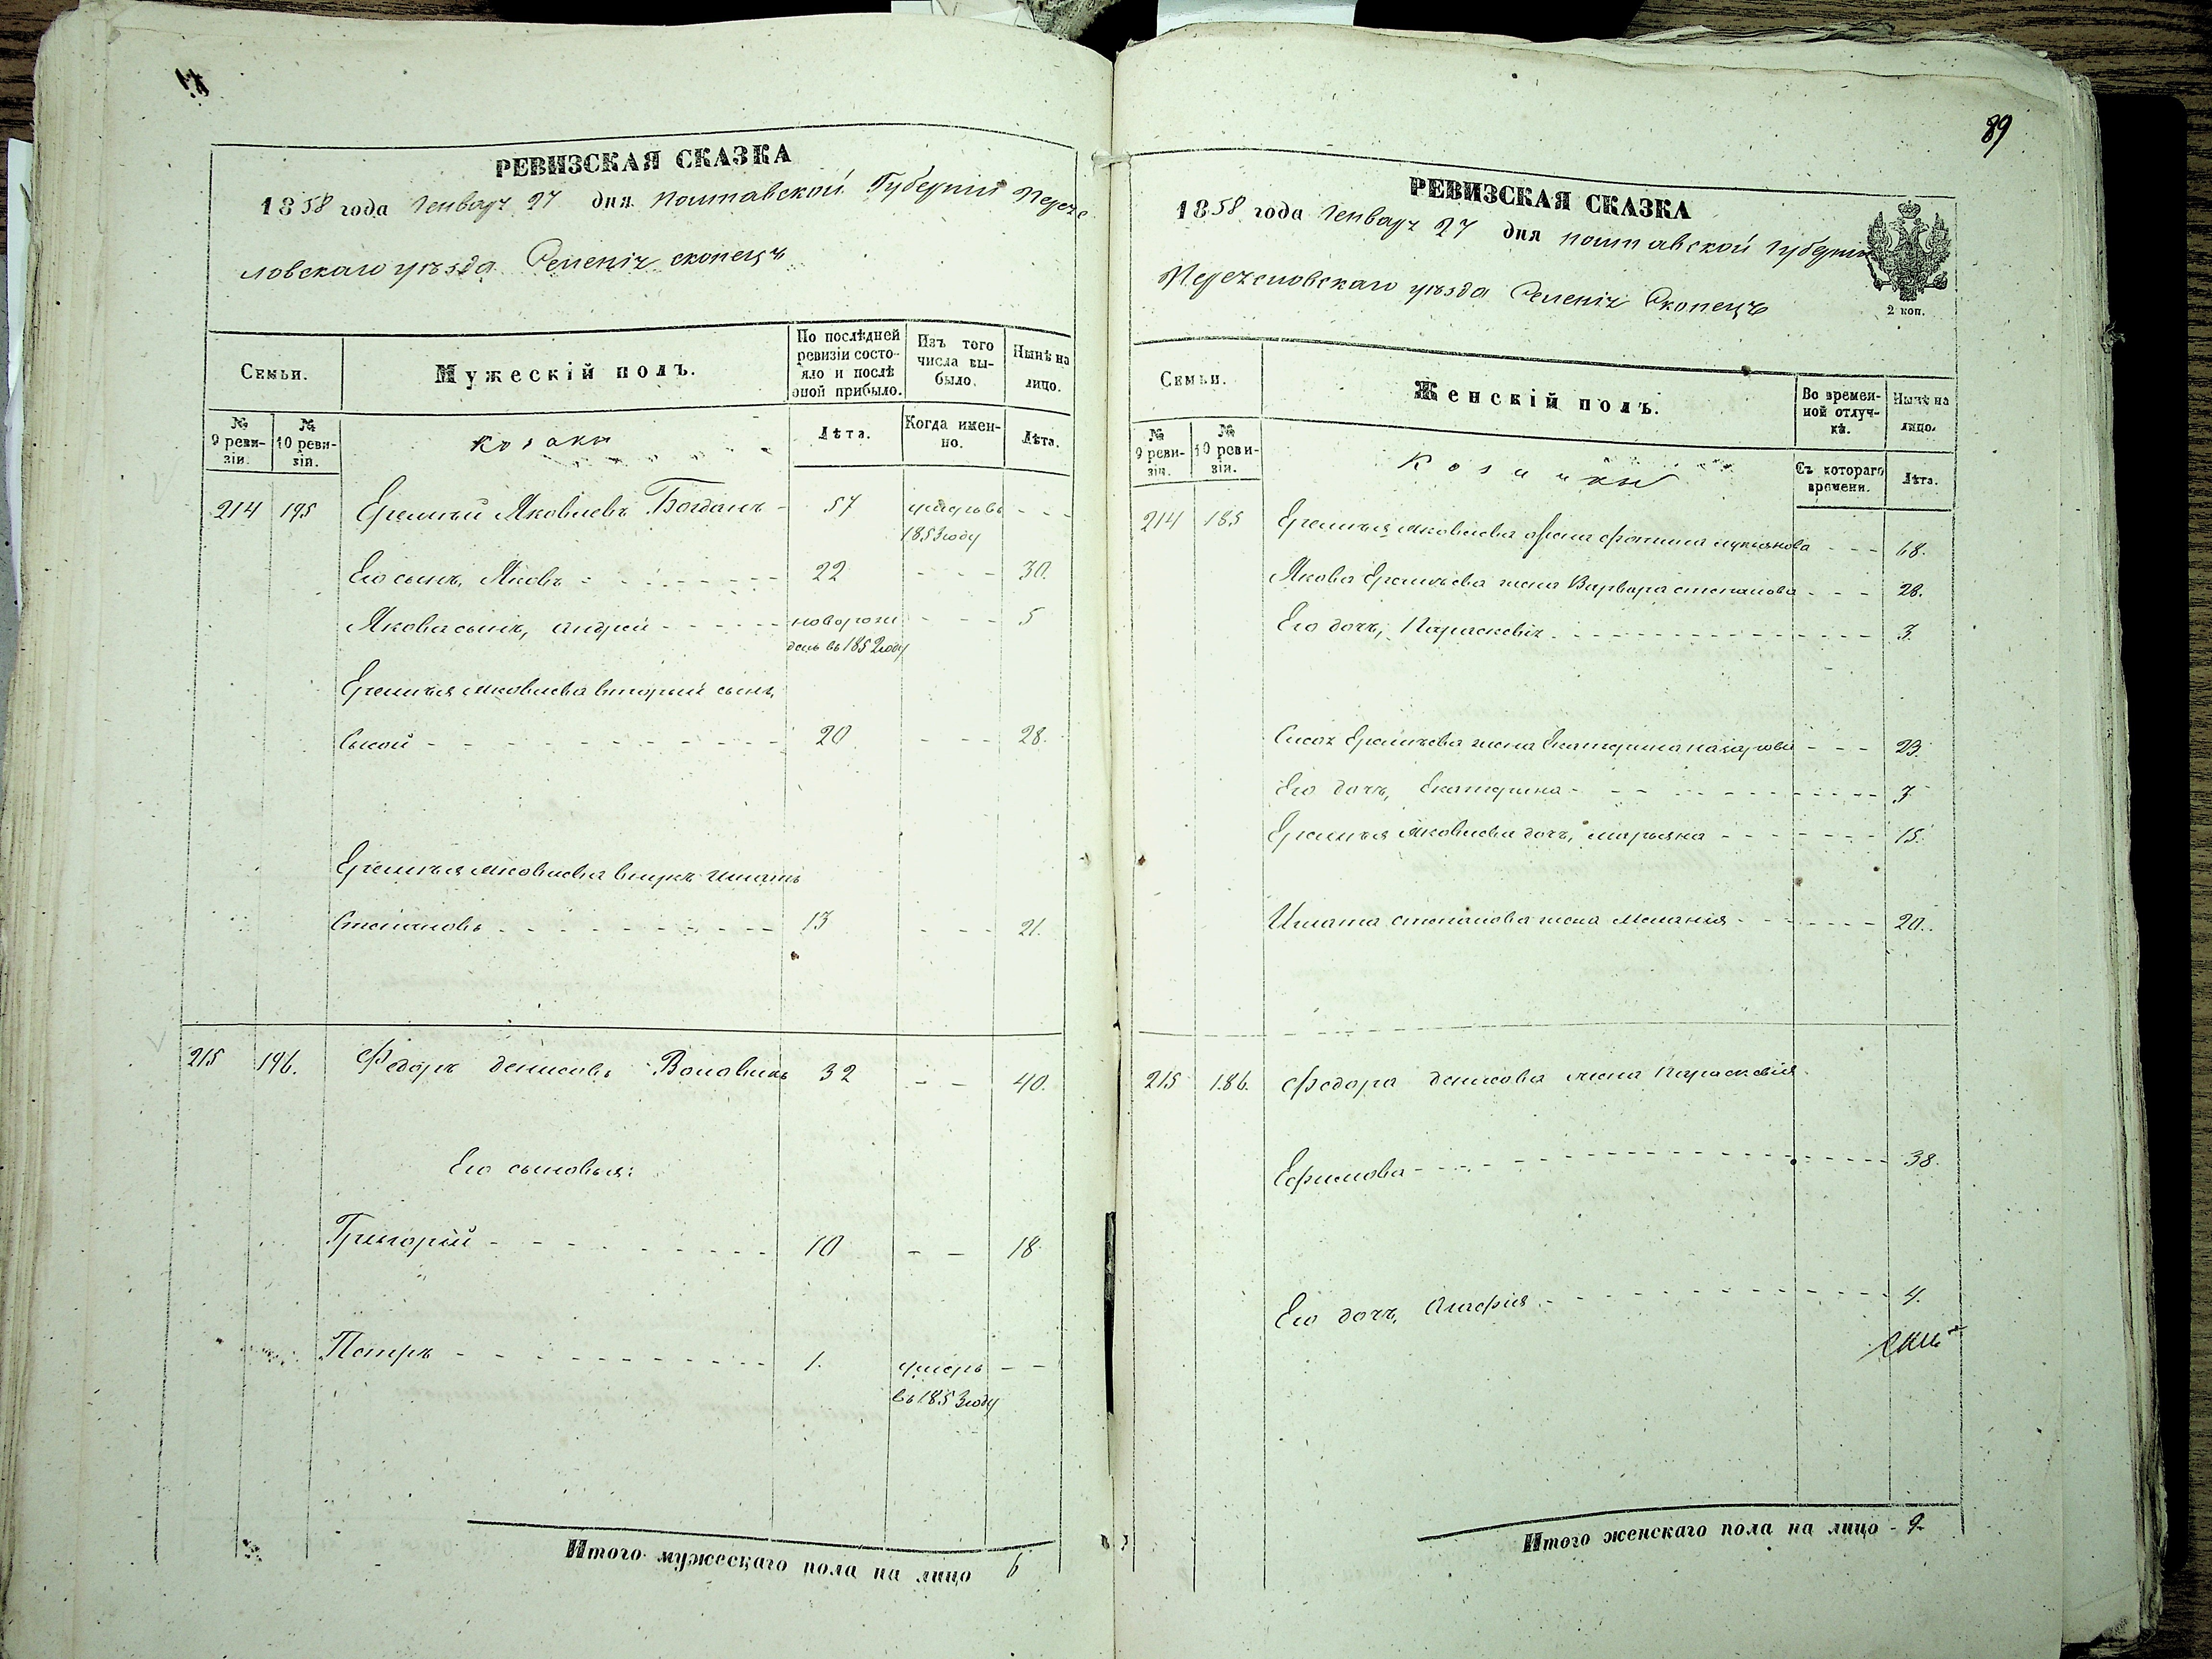 РЕВИЗСКАЯ СКАЗКА
1858 года Генваря 27 дня Полтавской Губернии Перея
словскаго уѣзда Селенія скопецъ
Семьи.
Мужескій полъ.
По послѣдней ревизіи состояло и послѣ оной прибыло.
Изъ того числа выбыло.
Нынѣ на лицо.
№ 9 ревизіи.
№ 10 ревизіи.
козаки
Лѣта.
Когда именно.
Лѣта.
214 195 Еремѣй Яковлевъ Богданъ - 57 умеръ въ - - -
1853 году
Его сынъ, Яковъ - - - 22 - - - 30.
Якова сынъ, андрей - - - новорож - - - 5
денъ въ 1852 году
Еремѣя Яковлева вторый сынъ,
Сысой - - - 20 - - - 28.
Еремѣя Яковлева внукъ Игнатъ
Степановъ - - - 13 - - - 21.
215 196. Федоръ денисовъ 32 - - 40.
Его сыновья:
Григорій - - - 10 - - 18
Петръ - - - 1. умеръ - -
въ 1853 году
Итого мужескаго пола на лицо 6
89
РЕВИЗСКАЯ СКАЗКА
1858 года Генваря 27 дня полтавской губерніи
Переяславскаго уѣзда Селенія Скопецъ
2 коп.
Семьи.
Женскій полъ.
Во временной отлучкѣ.
Нынѣ на лицо.
№ 9 ревизіи.
№ 10 ревизіи.
Съ котораго времени.
Лѣта.
214 185 Еремѣя Яковлева жена лукьянова - - - 68.
Якова Еремѣева жена Варвара степанова - - - 28.
Его дочь, Параскевія - - - 3.
Сысоя Еремѣева жена Екатерина назарова - - - 23.
Его дочь, Екатерина - - - 3.
Еремѣя Яковлева дочь, марьяна - - - 15.
Игната степанова жена Меланія - - - 20.
215 186. Федора денисова жена Параскевія
Ефимова - - - 38.
Его дочь, Агафія - - - 4.
Итого женскаго пола на лицо - 9